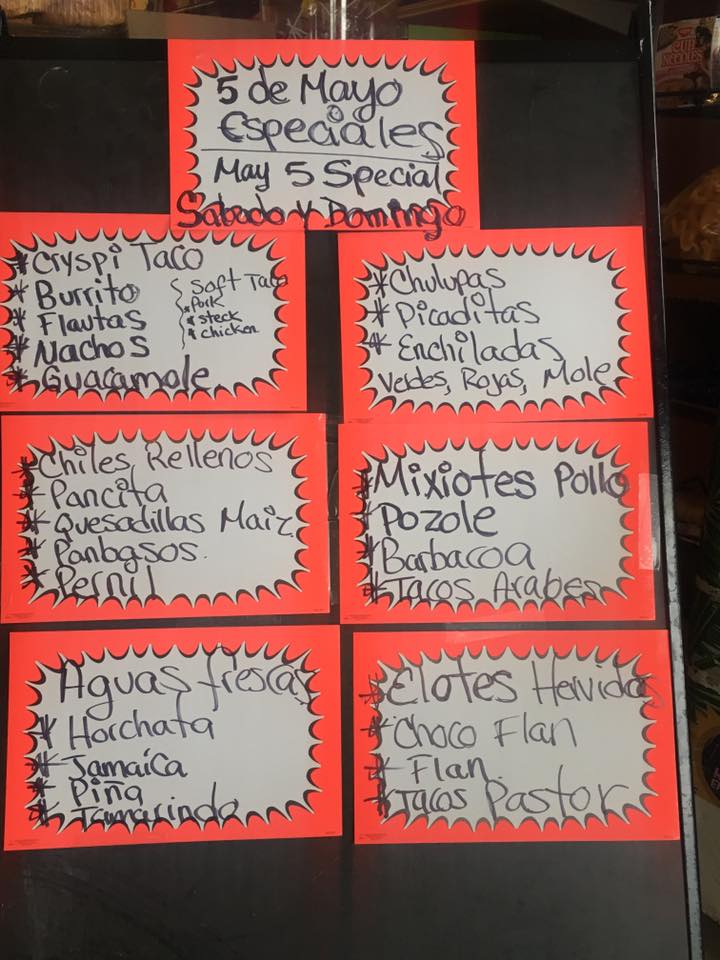 5 de Mayo
Especiales
May 5 Special
Sabado y Domingo
*Cryspi Taco
* Burrito
* Flautas
* Nachos
* Guacamole
Soft Taco
* Pork
* steck
* chicken
*Chulupas
* Picaditas
* Enchiladas
Verdes, Rojas, Mole
*Chiles Rellenos
* Pancita
* Quesadillas Maiz
* Panbasos.
* Pernil
*Mixiotes Pollo
*Pozole
*Barbacoa
*Tacos Arabes
Aguas frescas
* Horchata
* Jamaica
* Piña
* Tamarindo
*Elotes Hervidos
* Choco Flan
* Flan
*Tacos Pastor
CUP
NOODLES